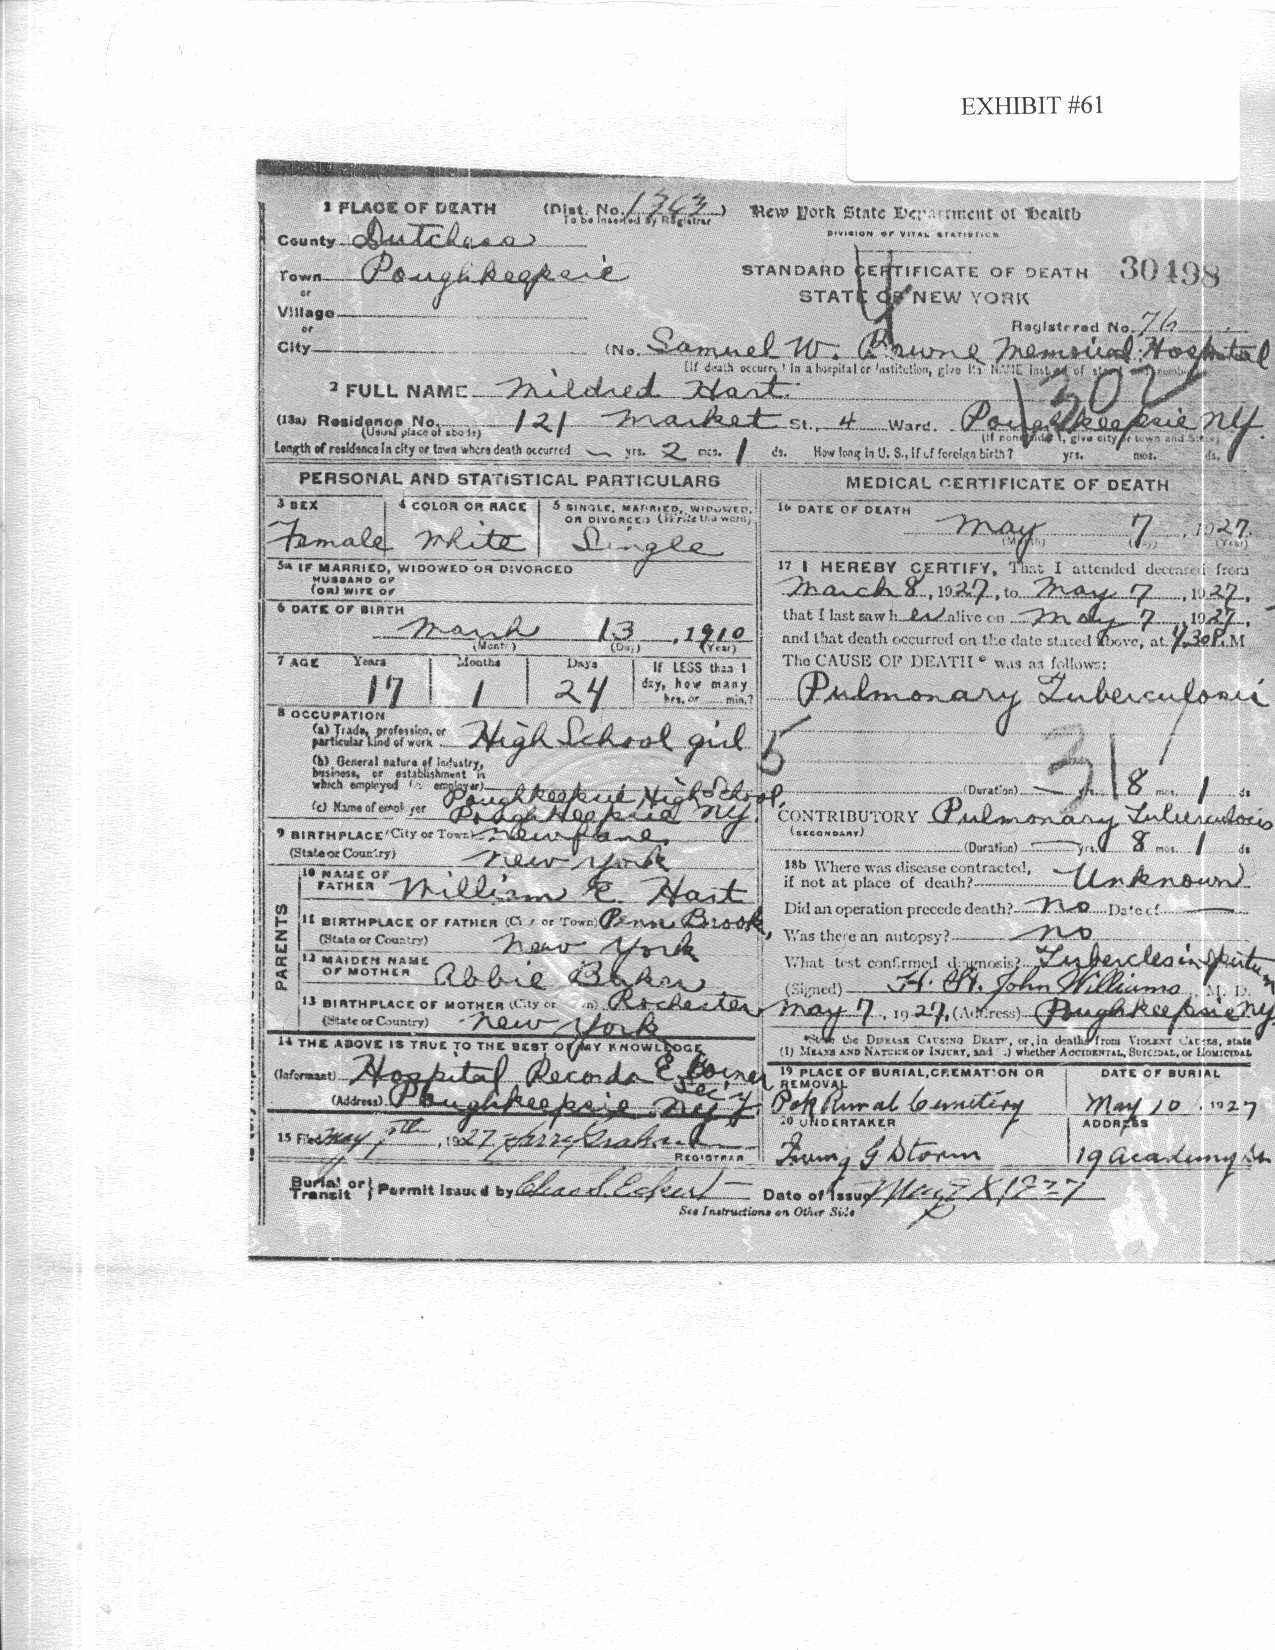 EXHIBIT #61
1 PLACE OF DEATH (Dist. No. 1363) New York State Department of Health
To be Inserted by Registrar
DIVISION OF VITAL STATISTICS
County Dutchess
STANDARD CERTIFICATE OF DEATH 30498
Town Poughkeepsie
or
STATE OF NEW YORK
Village
or
Registered No. 76
City (No. Samuel W. Bowne Memorial Hospital
(If death occurred in a hospital or institution, give its NAME instead of street and number)
2 FULL NAME Mildred Hart
(13a) Residence No. 121 Market St., 4 Ward. Poughkeepsie NY.
(Usual place of abode) (If nonresident, give city or town and State)
Length of residence in city or town where death occurred — yrs. 2 mos. 1 ds. How long in U. S., if of foreign birth? yrs. mos. ds.
PERSONAL AND STATISTICAL PARTICULARS
3 SEX 4 COLOR OR RACE 5 SINGLE, MARRIED, WIDOWED,
OR DIVORCED (Write the word)
Female White Single
5a IF MARRIED, WIDOWED OR DIVORCED
HUSBAND OF
(OR) WIFE OF
6 DATE OF BIRTH
March 13, 1910
(Month) (Day) (Year)
7 AGE Years Months Days If LESS than 1
day, how many
hrs. or min.?
17 1 24
8 OCCUPATION
(a) Trade, profession, or
particular kind of work High School girl
(b) General nature of industry,
business, or establishment in
which employed (or employer) Poughkeepsie High School,
(c) Name of employer Poughkeepsie NY.
9 BIRTHPLACE (City or Town)
(State or Country) New York
10 NAME OF
FATHER William E. Hart
PARENTS
11 BIRTHPLACE OF FATHER (City or Town) Penn Brook,
(State or Country) New York
12 MAIDEN NAME
OF MOTHER Abbie Baker
13 BIRTHPLACE OF MOTHER (City or Town) Rochester
(State or Country) New York
14 THE ABOVE IS TRUE TO THE BEST OF MY KNOWLEDGE
(Informant) Hospital Records E. Sec'y
(Address) Poughkeepsie NY
15 Filed May 1927
REGISTRAR
MEDICAL CERTIFICATE OF DEATH
16 DATE OF DEATH
May 7, 1927.
(Month) (Day) (Year)
17 I HEREBY CERTIFY, That I attended deceased from
March 8, 1927, to May 7, 1927,
that I last saw her alive on May 7, 1927,
and that death occurred on the date stated above, at 4.30 P. M
The CAUSE OF DEATH* was as follows:
Pulmonary Tuberculosis
5 31
(Duration) — yrs. 8 mos. 1 ds
CONTRIBUTORY Pulmonary Tuberculosis
(SECONDARY)
(Duration) — yrs. 8 mos. 1 ds
18b Where was disease contracted,
if not at place of death? Unknown
Did an operation precede death? No Date of —
Was there an autopsy? No
What test confirmed diagnosis? Tubercles in sputum
(Signed) H. St. John Williams, M. D.
May 7, 1927, (Address) Poughkeepsie NY
*State the DISEASE CAUSING DEATH, or, in deaths from VIOLENT CAUSES, state
(1) MEANS AND NATURE OF INJURY, and (2) whether ACCIDENTAL, SUICIDAL, or HOMICIDAL
19 PLACE OF BURIAL, CREMATION OR
REMOVAL DATE OF BURIAL
Pok Rural Cemetery May 10 1927
20 UNDERTAKER ADDRESS
Irving G Storm 19 Academy St
Burial or
Transit } Permit Issued by Chas S. Eckert Date of Issue May 8 1927
See Instructions on Other Side